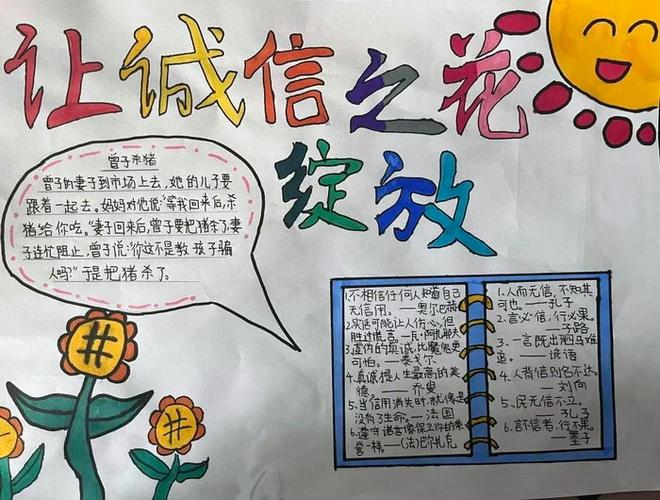 让诚信之花
绽放
曾子杀猪
曾子的妻子到市场上去，她的儿子要
跟着一起去。妈妈对他说：“等我回来后，杀
猪给你吃。”妻子回来后，曾子要把猪牢了妻
子连忙阻止，曾子说：“你这不是教孩子骗
人吗？”于是把猪杀了。
1.不相信任何人知道自己
无信用。——奥尔巴赫
2.实话可能让人伤心，但
胜过谎言。——瓦·阿扎耶夫
3.虚伪的真诚，比魔鬼更
可怕。——泰戈尔
4.真诚是人生最高的美
德。——乔叟
5.当信用消失时，就像是
没有了生命。——法国
6.遵守诺言像保卫你的荣
誉一样。——（法）巴尔扎克
1.人而无信，不知其
可也。——孔子
2.言必信，行必果。
——子路
3.一言既出驷马难
追。——谚语
4.人背信则名不达。
——刘向
5.民无信不立。
——孔子
6.言不信者，行不果。
——墨子